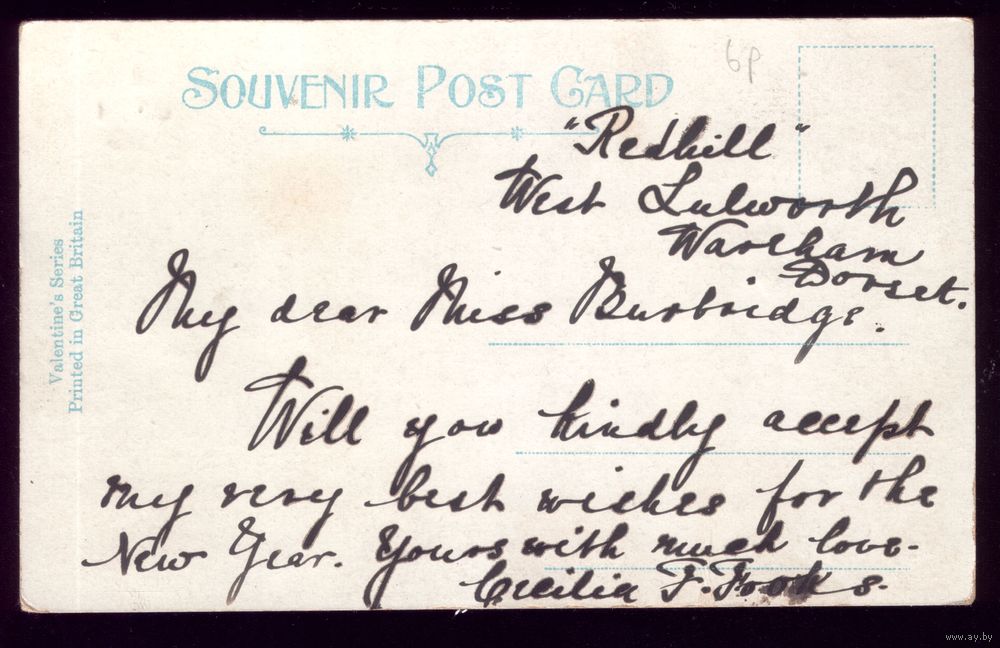 6p
SOUVENIR POST CARD
"Redhill"
West Lulworth
Wareham
Dorset.
My dear Miss Burbridge.
Will you kindly accept
my very best wishes for the
New Year. Yours with much love.
Cecilia F. Fooks.
Valentine's Series
Printed in Great Britain
www.ay.by